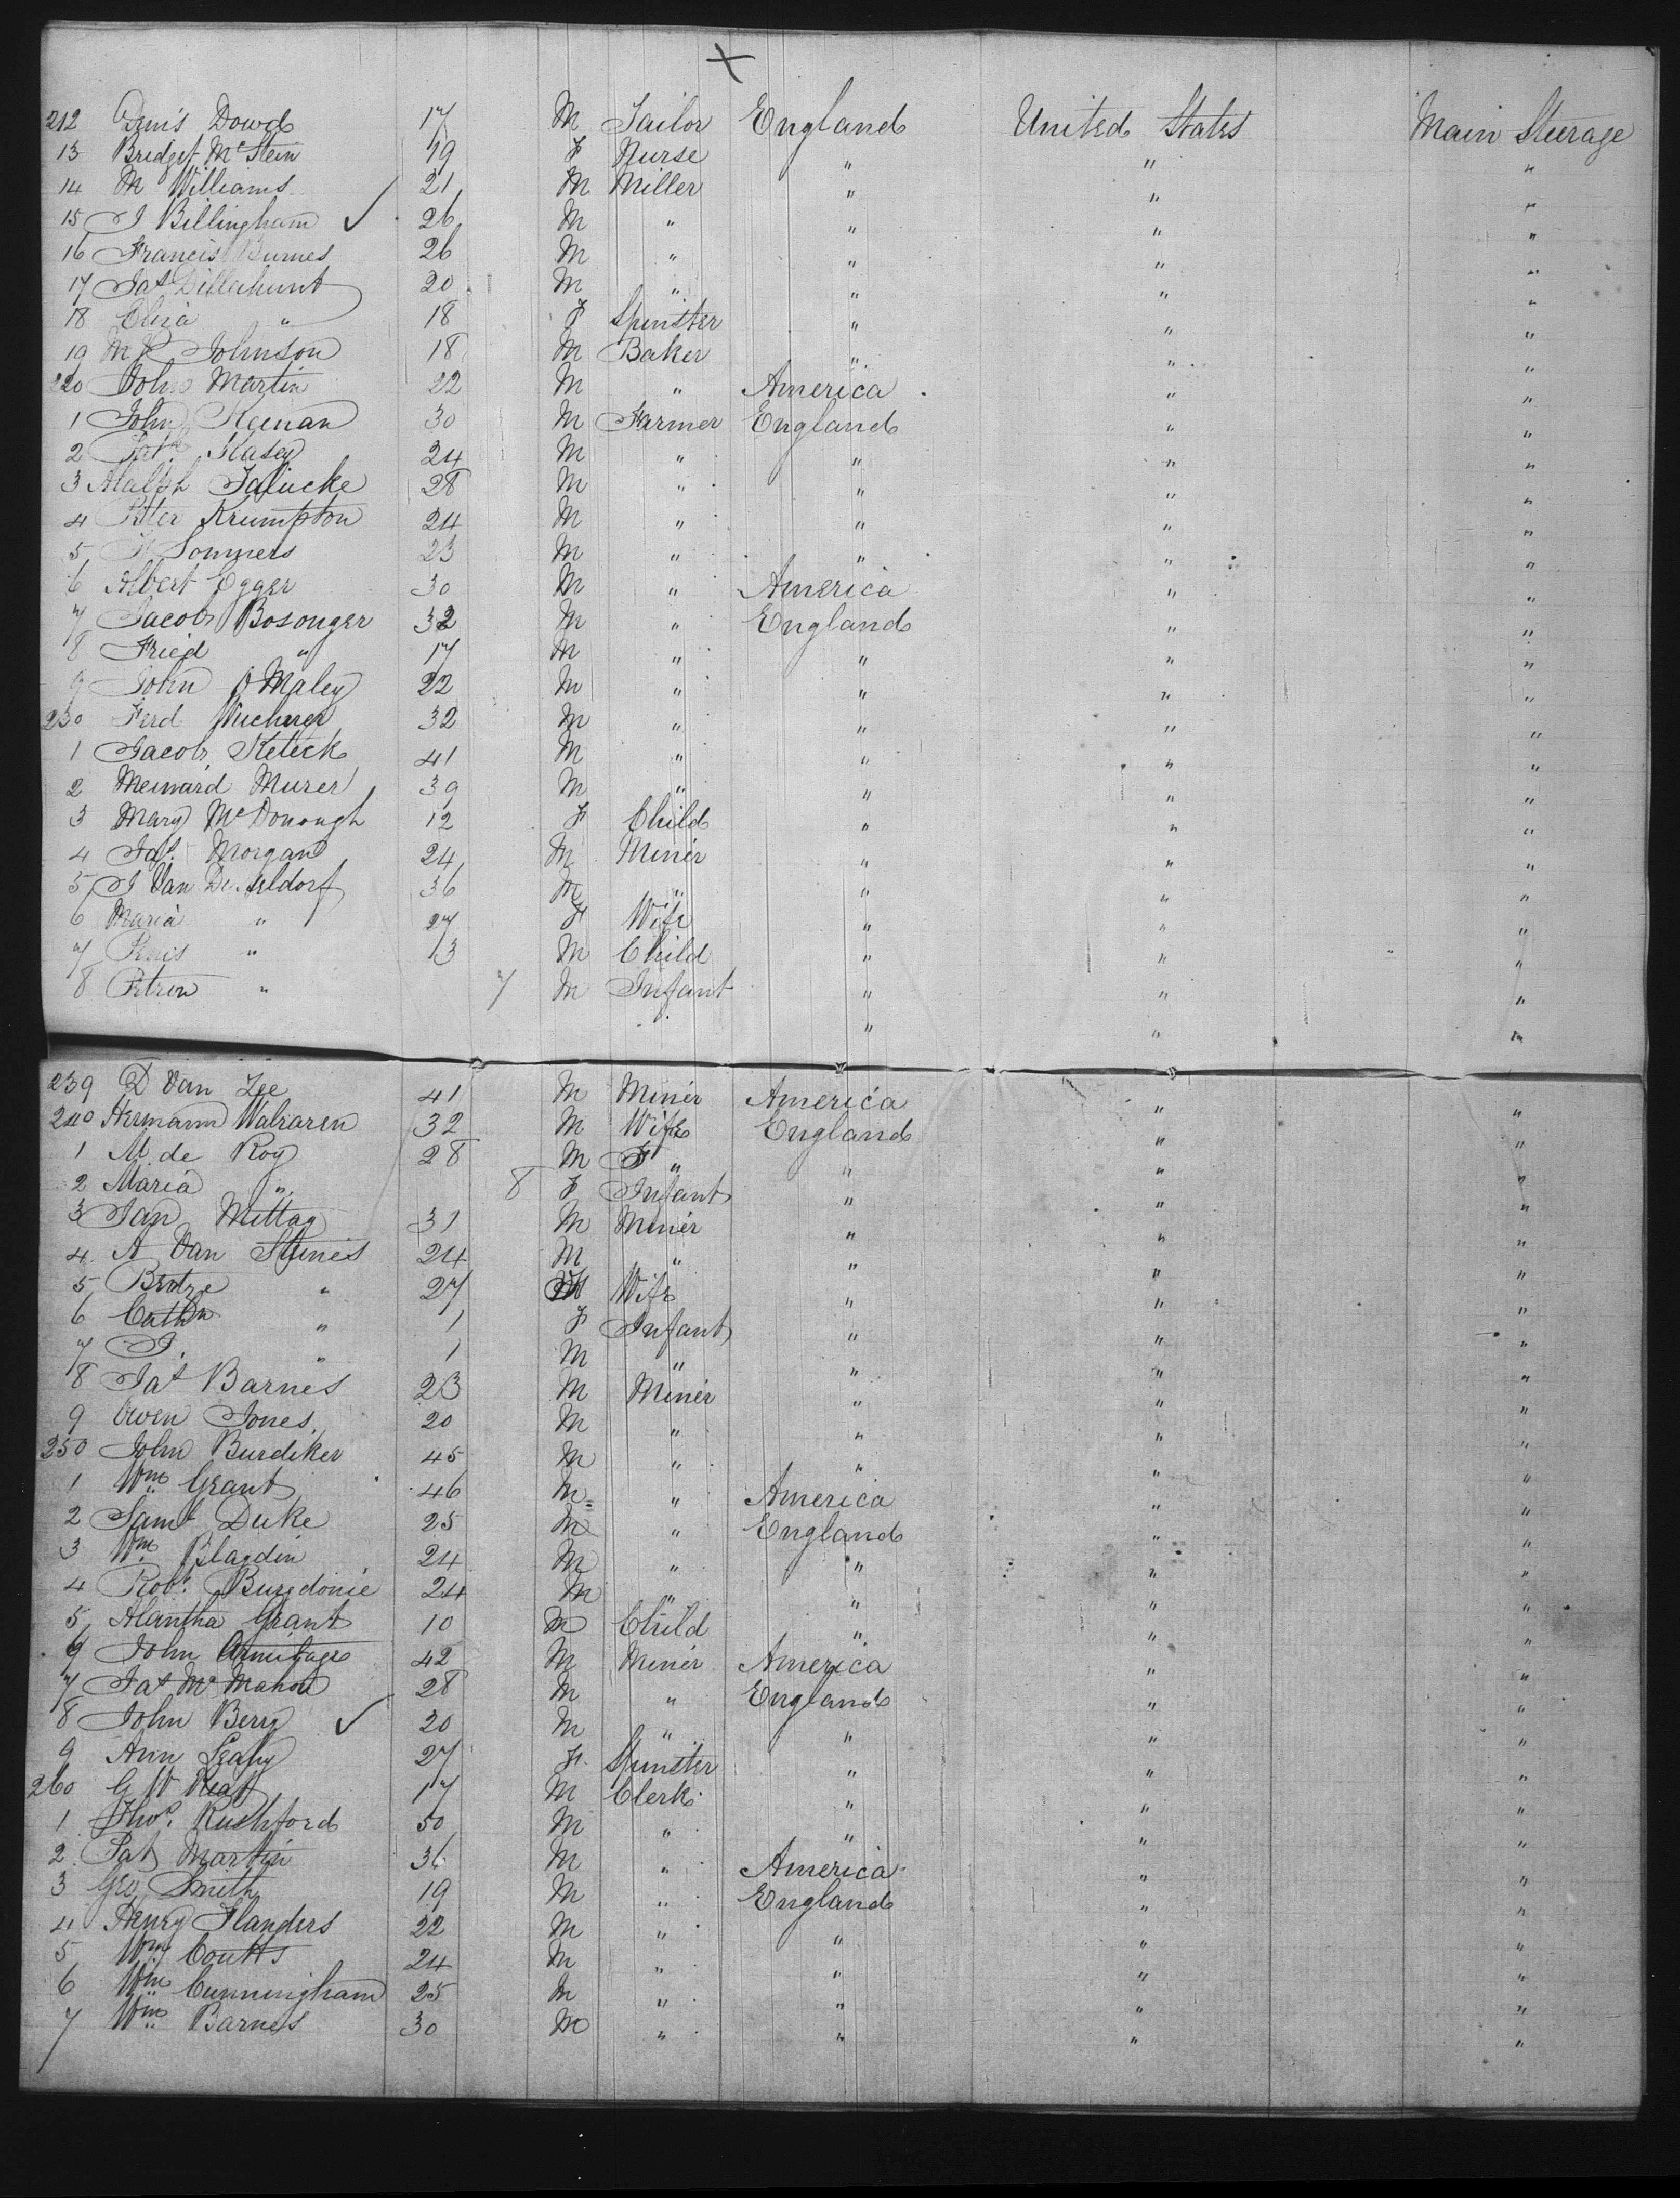 X
212 Denis Dowd 17 M Tailor England United States Main Steerage
13 Bridget McStein 19 F Nurse " " "
14 M Williams 21 M Miller " " "
15 J Billingham ✓ 26 M " " " "
16 Francis Burnes 26 M " " " "
17 Jas Dillahunt 20 M " " " "
18 Eliza " 18 F Spinster " " "
19 M P Johnson 18 M Baker " " "
220 John Martin 22 M " America " "
1 John Keenan 30 M Farmer England " "
2 Patk Kasey 24 M " " " "
3 28 M " " " "
4 Peter Krumpton 24 M " " " "
5 Sommers 23 M " " " "
6 Albert Egger 30 M " America " "
7 Jacob Bosonger 32 M " England " "
8 Fried " 17 M " " " "
9 John O Maley 22 M " " " "
230 Ferd 32 M " " " "
1 Jacob Keteck 41 M " " " "
2 Meinard Murer 39 M " " " "
3 Mary McDonough 12 F Child " " "
4 Jas. Morgan 24 M Miner " " "
5 J Van 36 M " " " "
6 Maria " 27 F Wife " " "
7 " 13 M Child " " "
8 Petron " 7 M Infant " " "
" " "
239 D Van Zee 41 M Miner America " "
240 Hermann Walraren 32 M Wife England " "
1 M. de Roy 28 M F " " " "
2 Maria " 8 F Infant " " "
3 Jan Mittag 31 M Miner " " "
4 A Van Stunes 24 M " " " "
5 Bertze " 27 F Wife " " "
6 Cathn " 1 F Infant " " "
7 J. " 1 M " " " "
8 Jas Barnes 23 M Miner " " "
9 Owen Jones 20 M " " " "
250 John Burdiker 45 M " " " "
1 Wm Grant 46 M " America " "
2 Saml Duke 25 M " England " "
3 Wm Blagdin 24 M " " " "
4 Robt. Burgdonie 24 M " " " "
5 Alantha Grant 10 M Child " " "
6 John Armitage 42 M Miner America " "
7 Jas McMahon 28 M " England " "
8 John Berry ✓ 20 M " " " "
9 Ann Leahy 27 F Spinster " " "
260 G W 17 M Clerk " " "
1 Thos. Rushford 50 M " " " "
2 Pat Martin 36 M " America " "
3 Geo Smith 19 M " England " "
4 Henry Flanders 22 M " " " "
5 Wm Coutts 24 M " " " "
6 Wm Cunningham 25 M " " " "
7 Wm Barnes 30 M " " " "